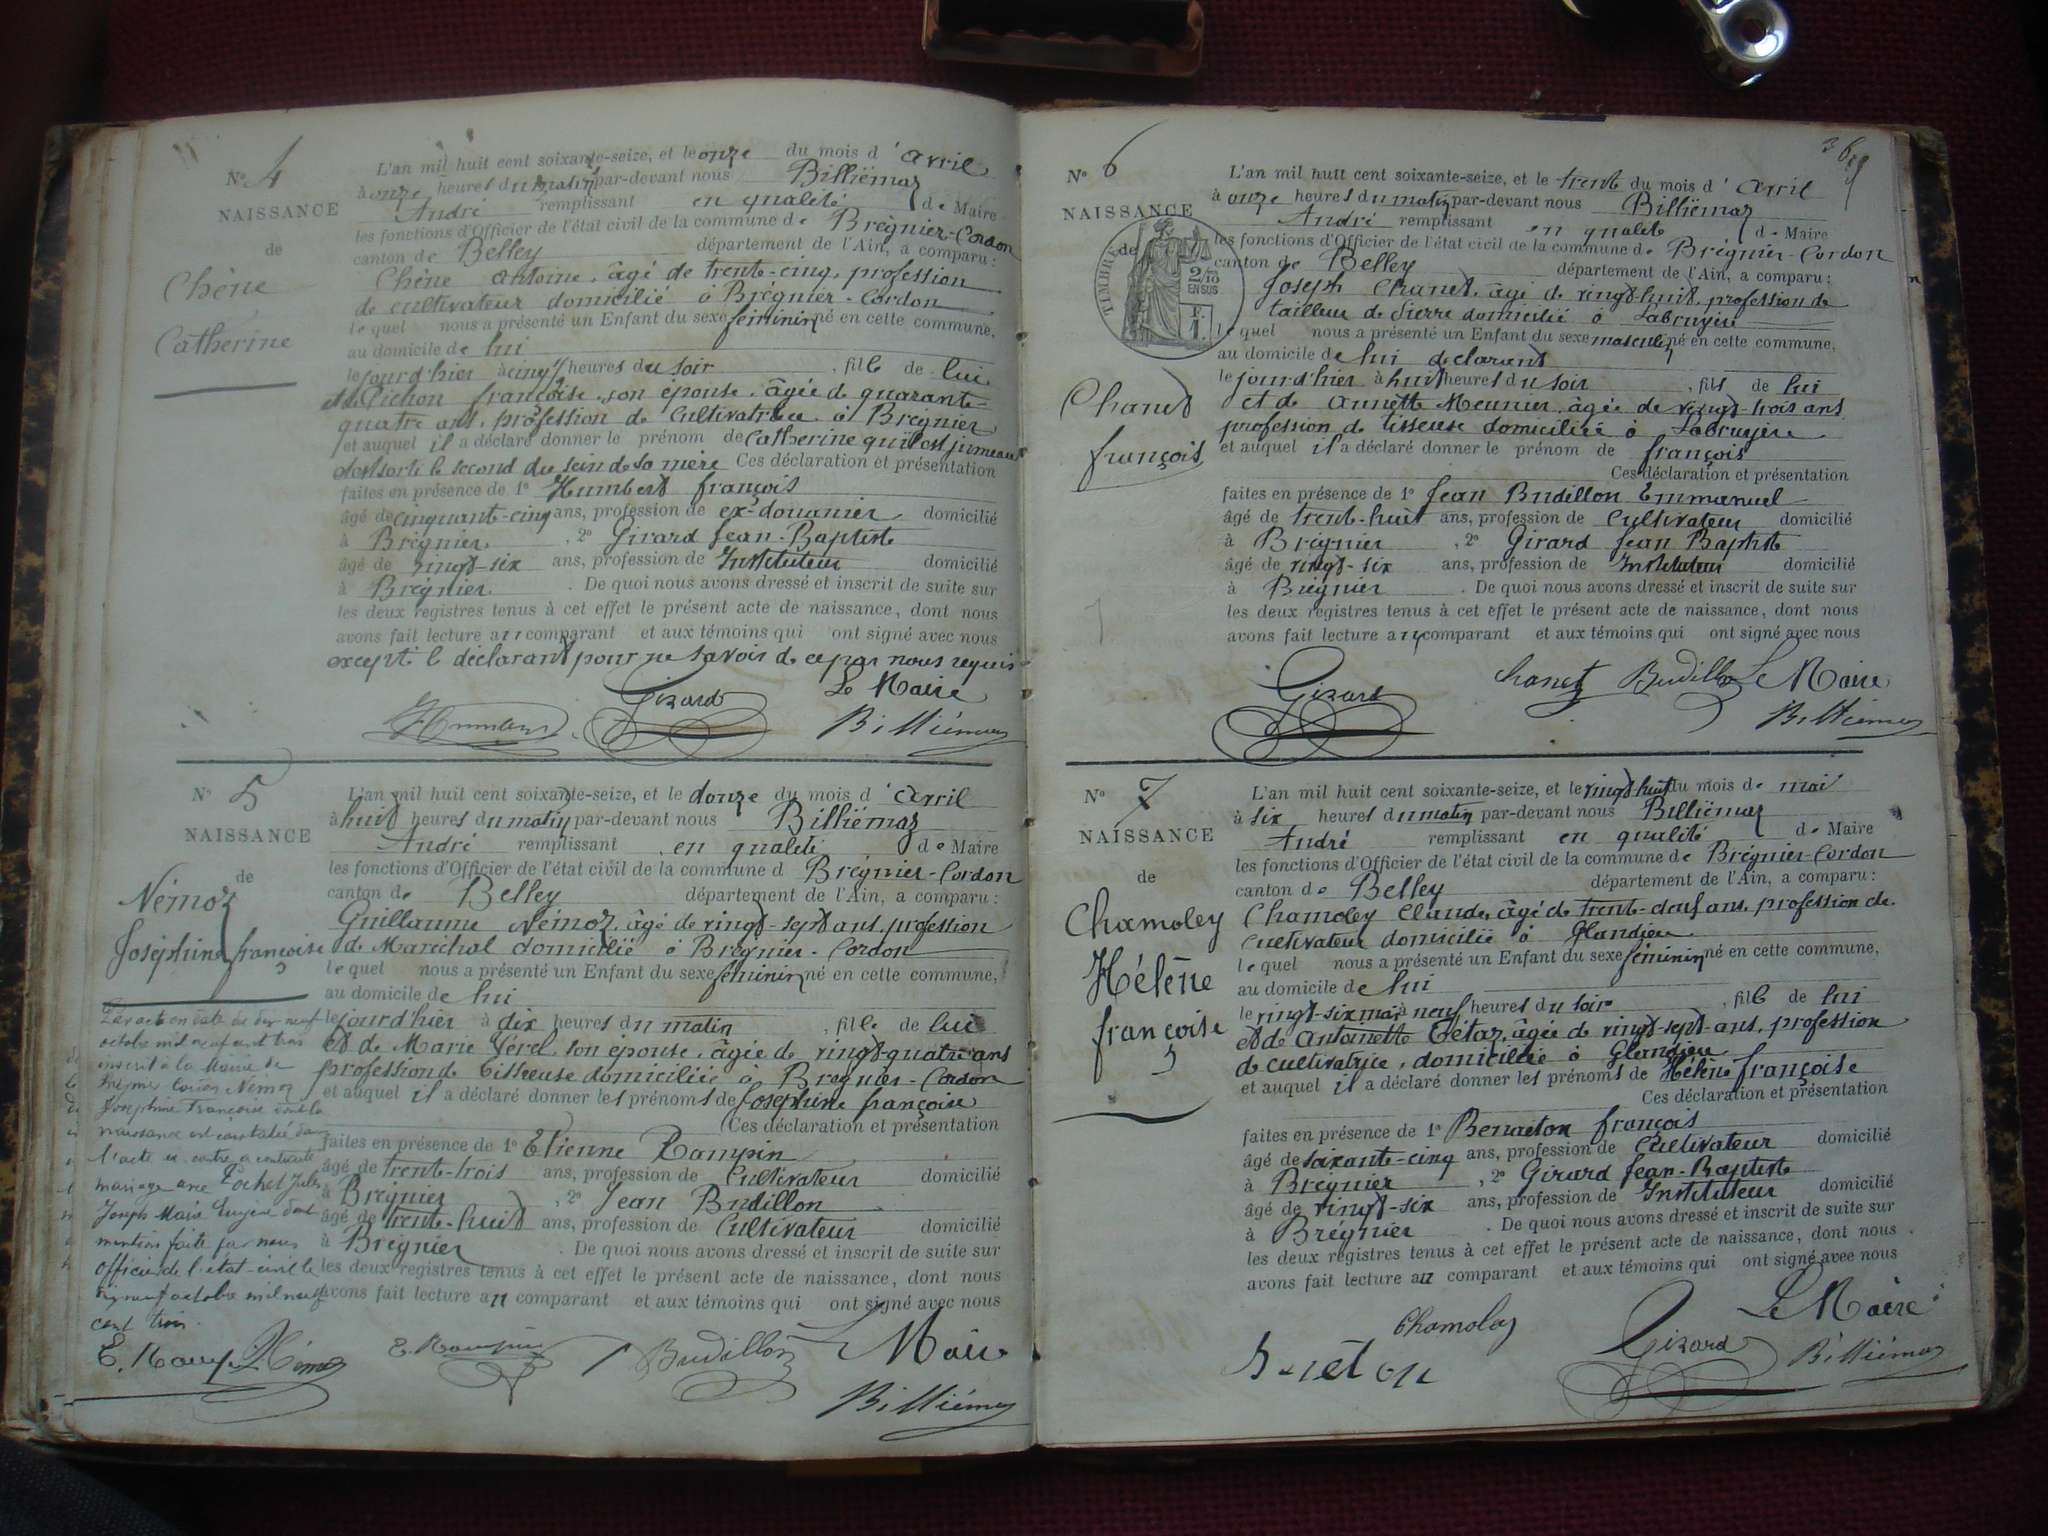 N° 4
NAISSANCE
de
Chêne
Catherine
L'an mil huit cent soixante-seize, et le onze du mois d'avril
à onze heures du matin par-devant nous Billiémaz
André remplissant en qualité de Maire
les fonctions d'Officier de l'état civil de la commune de Brégnier-Cordon
canton de Belley département de l'Ain, a comparu:
Chêne Antoine, âgé de trente-cinq, profession
de cultivateur domicilié à Brégnier-Cordon
lequel nous a présenté un Enfant du sexe féminin né en cette commune,
au domicile de lui
le jour d'hier à cinq heures du soir, fille de lui
et de Pichon françoise son épouse, âgée de quarante-
quatre ans, profession de Cultivatrice à Brégnier
et auquel il a déclaré donner le prénom de Catherine qu'il est jumeau
sorti le second du sein de sa mère Ces déclaration et présentation
faites en présence de 1° Humbert françois
âgé de cinquant-cinq ans, profession de ex-douanier domicilié
à Brégnier, 2° Girard Jean-Baptiste
âgé de vingt-six ans, profession de Instituteur domicilié
à Brégnier. De quoi nous avons dressé et inscrit de suite sur
les deux registres tenus à cet effet le présent acte de naissance, dont nous
avons fait lecture au comparant et aux témoins qui ont signé avec nous
excepté le déclarant pour ne savoir de ce par nous requis
Girard Le Maire
Billiémaz
N° 5
NAISSANCE
de
Némoz
Joséphine françoise
L'an mil huit cent soixante-seize, et le douze du mois d'avril
à huit heures du matin par-devant nous Billiémaz
André remplissant en qualité de Maire
les fonctions d'Officier de l'état civil de la commune d Brégnier-Cordon
canton de Belley département de l'Ain, a comparu:
Guillaume Némoz, âgé de vingt-sept ans, profession
de Maréchal domicilié à Brégnier-Cordon
lequel nous a présenté un Enfant du sexe féminin né en cette commune,
au domicile de lui
le jour d'hier à dix heures du matin, fille de lui
et de Marie Férel son épouse, âgée de vingt-quatre ans
profession de Tisseuse domiciliée à Bregnier-Cordon
et auquel il a déclaré donner les prénoms de Joséphine françoise
Ces déclaration et présentation
faites en présence de 1° Etienne Rampin
âgé de trente-trois ans, profession de Cultivateur domicilié
à Brégnier, 2° Jean Budillon
âgé de trente-huit ans, profession de Cultivateur domicilié
à Brégnier. De quoi nous avons dressé et inscrit de suite sur
les deux registres tenus à cet effet le présent acte de naissance, dont nous
avons fait lecture au comparant et aux témoins qui ont signé avec nous
Par acte en date du dix neuf
octobre mil neuf cent trois
inscrit à la Mairie de
Némoz
Joséphine Françoise dont la
naissance est constatée dans
l'acte ci contre a contracté
mariage avec Pochet Jules
Joseph Marie Eugène dont
mention faite par nous
officier de l'état-civil le
vingt neuf octobre mil neuf
cent trois.
Némoz E. Rampin Budillon Le Maire
Billiémaz
N° 6
NAISSANCE
de
TIMBRE
2/10
EN SUS
F.
1.
Chanet
françois
L'an mil huit cent soixante-seize, et le trent du mois d'avril
à onze heures du matin par-devant nous Billiémaz
André remplissant en qualité de Maire
les fonctions d'Officier de l'état civil de la commune de Brégnier-Cordon
canton de Belley département de l'Ain, a comparu:
Joseph Chanet, âgé de vingt-huit, profession de
tailleur de Pierre domicilié à Labruyère
lequel nous a présenté un Enfant du sexe masculin né en cette commune,
au domicile de lui déclarant
le jour d'hier à huit heures du soir, fils de lui
et de Annette Meunier, âgée de vingt-trois ans
profession de tisseuse domiciliée à Labruyère
et auquel il a déclaré donner le prénom de françois
Ces déclaration et présentation
faites en présence de 1° Jean Budillon Emmanuel
âgé de trent-huit ans, profession de Cultivateur domicilié
à Brégnier, 2° Girard Jean Baptiste
âgé de vingt-six ans, profession de Instituteur domicilié
à Brégnier. De quoi nous avons dressé et inscrit de suite sur
les deux registres tenus à cet effet le présent acte de naissance, dont nous
avons fait lecture au comparant et aux témoins qui ont signé avec nous
Girard Chanet Budillon Le Maire
Billiémaz
N° 7
NAISSANCE
de
Chamoley
Hélène
françoise
L'an mil huit cent soixante-seize, et le vingt-huit du mois de mai
à six heures du matin par-devant nous Billiémaz
André remplissant en qualité de Maire
les fonctions d'Officier de l'état civil de la commune de Brégnier-Cordon
canton de Belley département de l'Ain, a comparu:
Chamoley Claude, âgé de trente-deuf ans, profession de
Cultivateur domicilié à Glandieu
lequel nous a présenté un Enfant du sexe féminin né en cette commune,
au domicile de lui
le vingt-six mai à neuf heures du soir, fille de lui
et de Antoinette Tétaz, âgée de vingt-sept-ans, profession
de cultivatrice, domiciliée à Glandieu
et auquel il a déclaré donner les prénoms de Hélène françoise
Ces déclaration et présentation
faites en présence de 1° françois
âgé de soixante-cinq ans, profession de Cultivateur domicilié
à Bregnier, 2° Girard Jean-Baptiste
âgé de vingt-six ans, profession de Instituteur domicilié
à Brégnier. De quoi nous avons dressé et inscrit de suite sur
les deux registres tenus à cet effet le présent acte de naissance, dont nous
avons fait lecture au comparant et aux témoins qui ont signé avec nous
Chamoley Girard Le Maire
Billiémaz